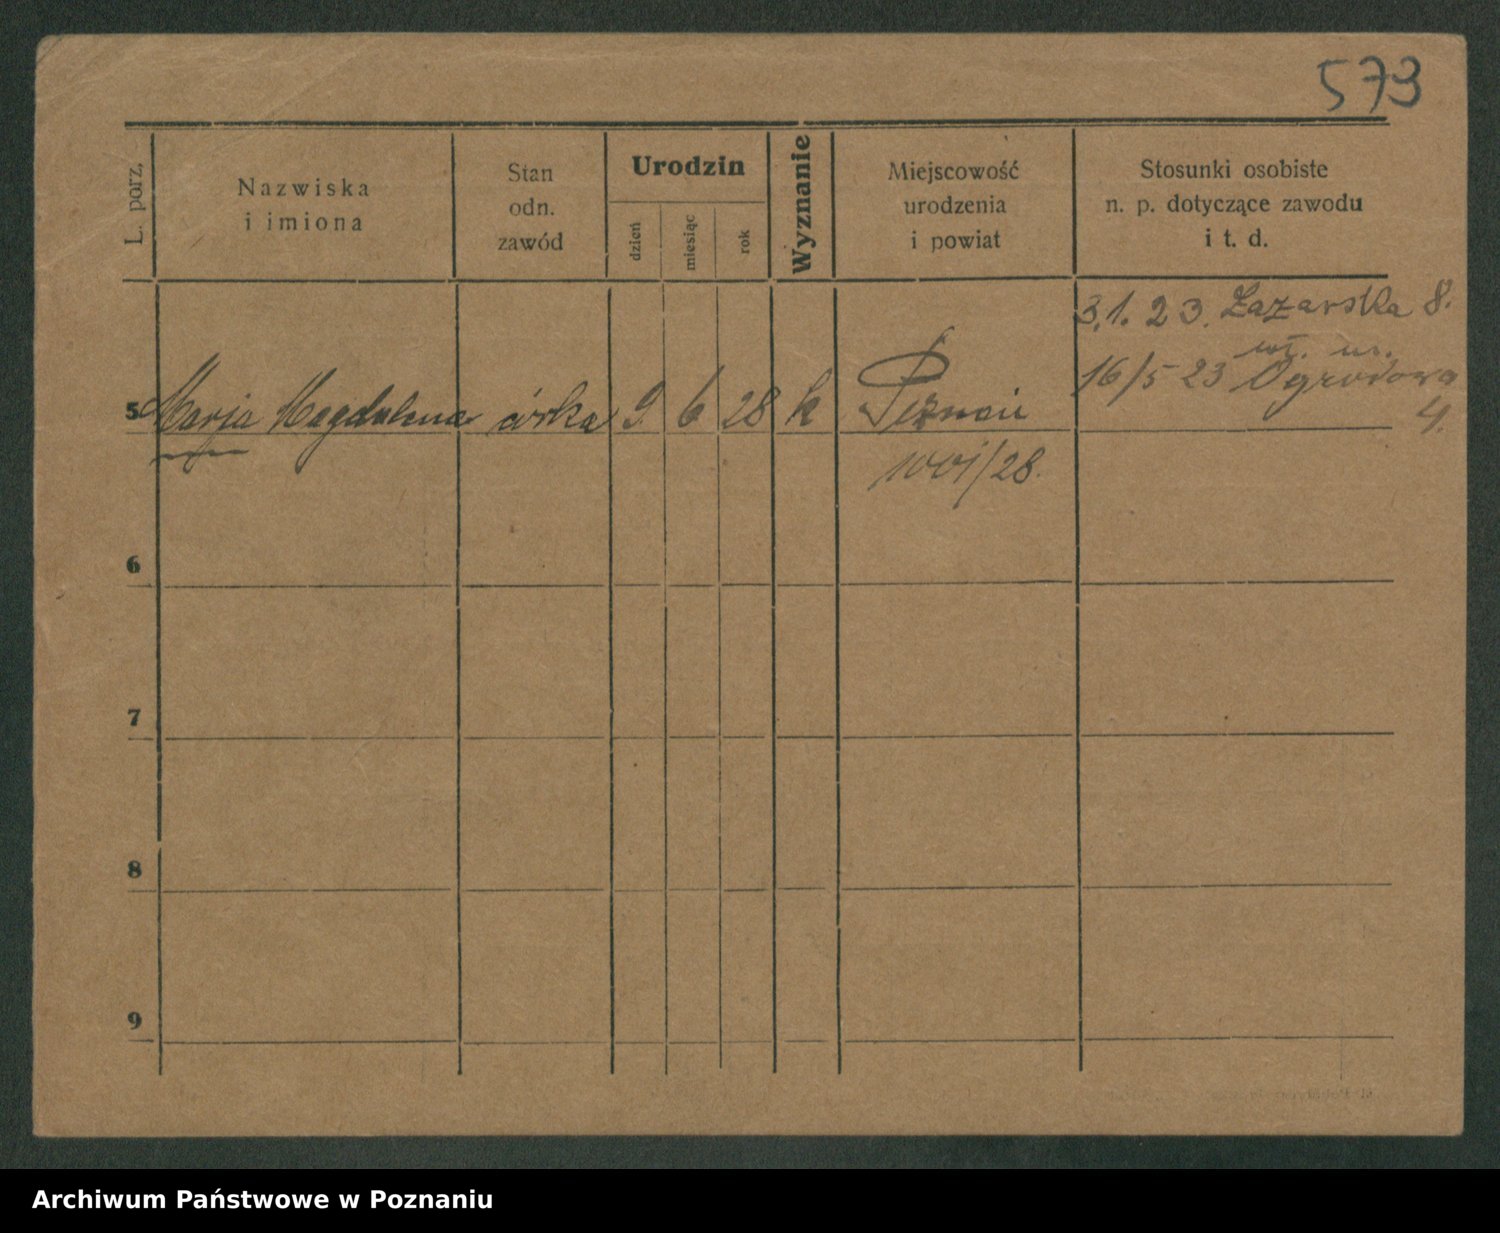 573
L. porz.
Nazwiska
i imiona
Stan
odn.
zawód
Urodzin
dzień
miesiąc
rok
Wyznanie
Miejscowość
urodzenia
i powiat
Stosunki osobiste
n. p. dotyczące zawodu
i t. d.
3.1.23. Łazarska 8.
16/5 23 Ogrodowa
4.
5 Marja Magdalena córka 9. 6 28 k Poznań
1001/28.
6
7
8
9
Archiwum Państwowe w Poznaniu